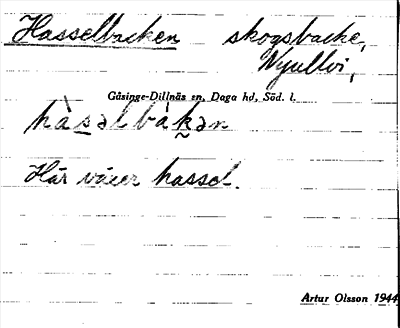 Hasselbacken skogsbacke,
Nyullvi,
Gåsinge-Dillnäs sn, Daga hd, Söd. l.
hàsəlbákən
Här växer hassel.
Artur Olsson 1944